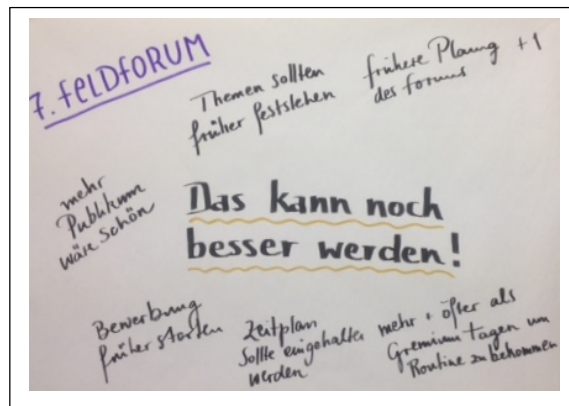 7. FELDFORUM
Themen sollten
früher feststehen
frühere Planung +1
des forums
mehr
Publikum
wäre schön
Das kann noch
besser werden!
Bewerbung
früher starten
Zeitplan
sollte eingehalten
werden
mehr + öfter als
Gremium tagen um
Routine zu bekommen